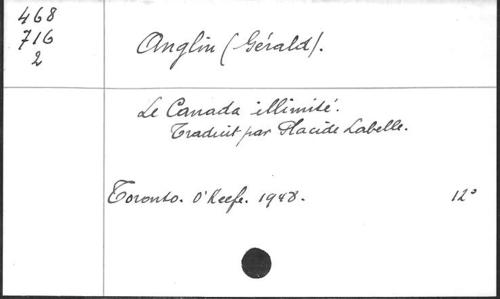 468
716
2
Anglin (Gérald).
Le Canada illimité.
Traduit par Placide Labelle.
Toronto. O'Keefe. 1948. 12°